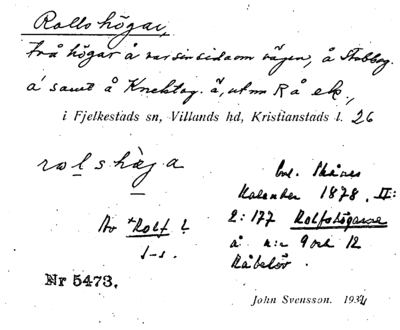 Rolls högar,
två högar å varsin sida om vägen, å Stubbag.
å samt å Knektag. å, utm Rå ek.,
i Fjelkestads sn, Villands hd, Kristianstads l. 26
rolshøga
Av *Rolf?
J-s.
Nr 5473.
Enl. Skånes
Kalender 1878. II:
2: 177 Rolfshögarne
å n:r 9 och 12
Råbelöv.
John Svensson. 1934